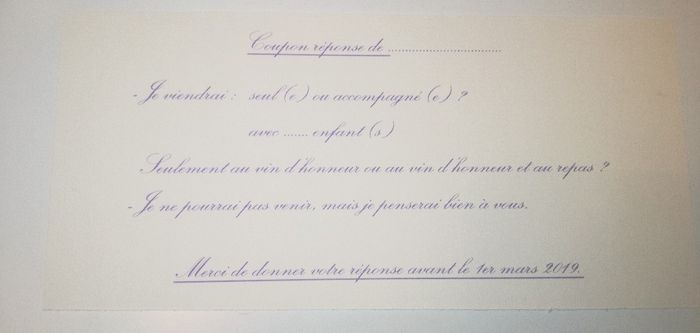 Coupon réponse de ..................................
- Je viendrai : seul (e) ou accompagné (e) ?
avec ....... enfant (s)
Seulement au vin d'honneur ou au vin d'honneur et au repas ?
- Je ne pourrai pas venir, mais je penserai bien à vous.
Merci de donner votre réponse avant le 1er mars 2019.